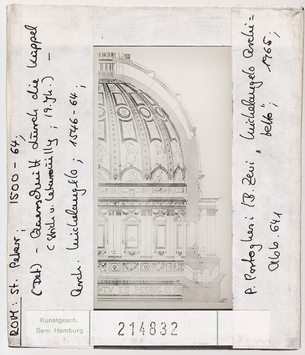 ROM: St. Peter; 1500-64;
(Det) - Querschnitt durch die Kuppel
(Stich v. Letarouilly; 19. Jh.) -
Arch. Michelangelo; 1546-64;
P. Portoghesi / B. Zevi, Michelangelo Archi=
tetto; 1965,
Abb. 641
Kunstgesch.
Sem. Hamburg
214832